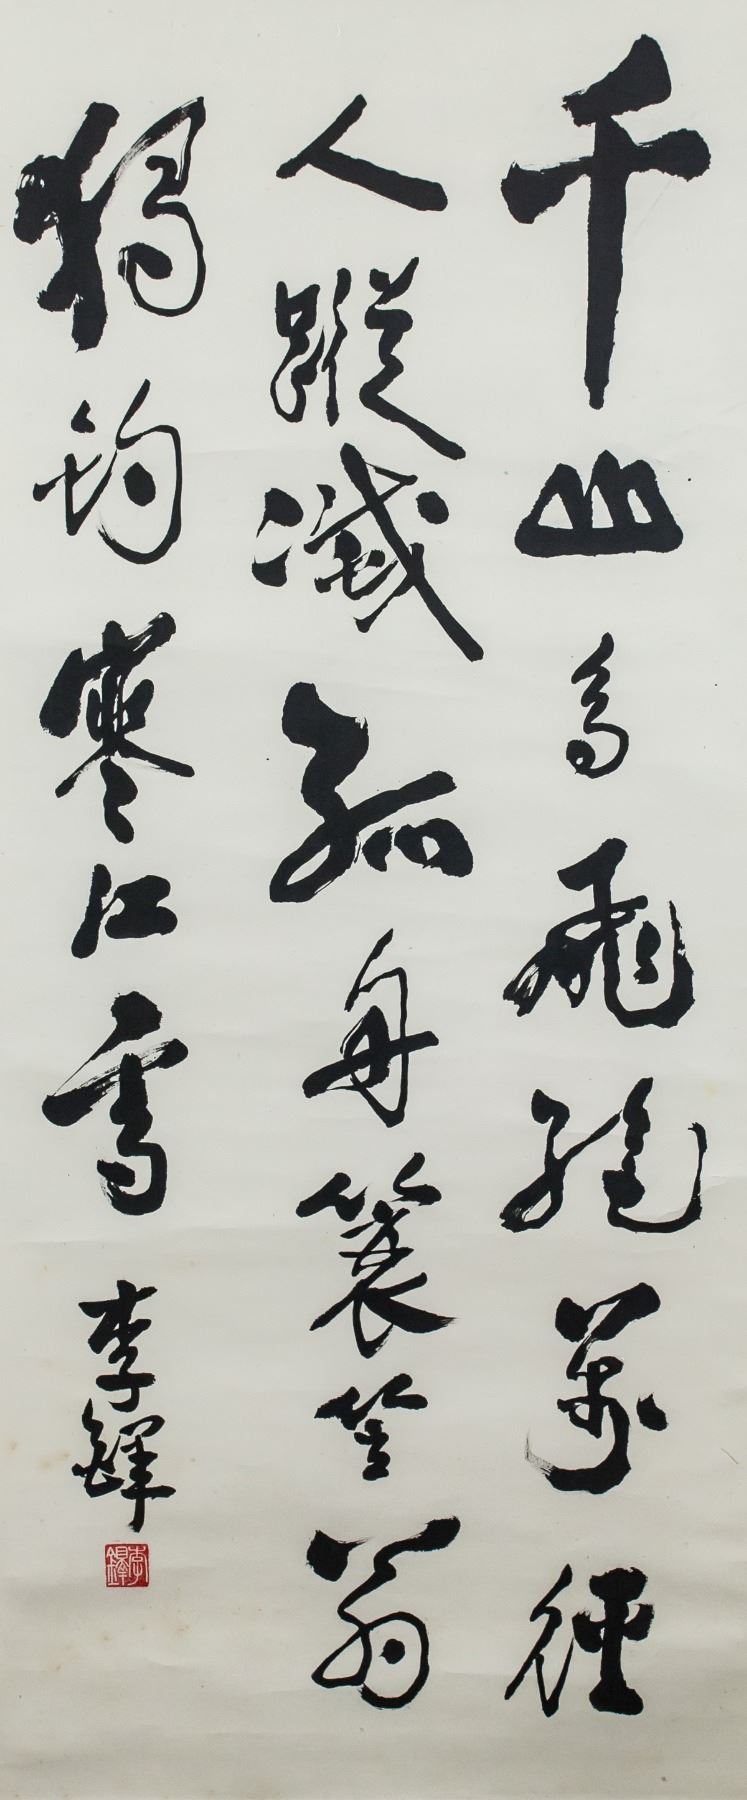 千山鳥飛絕萬徑
人蹤滅孤舟簑笠翁
獨釣寒江雪
李鐸
李鐸